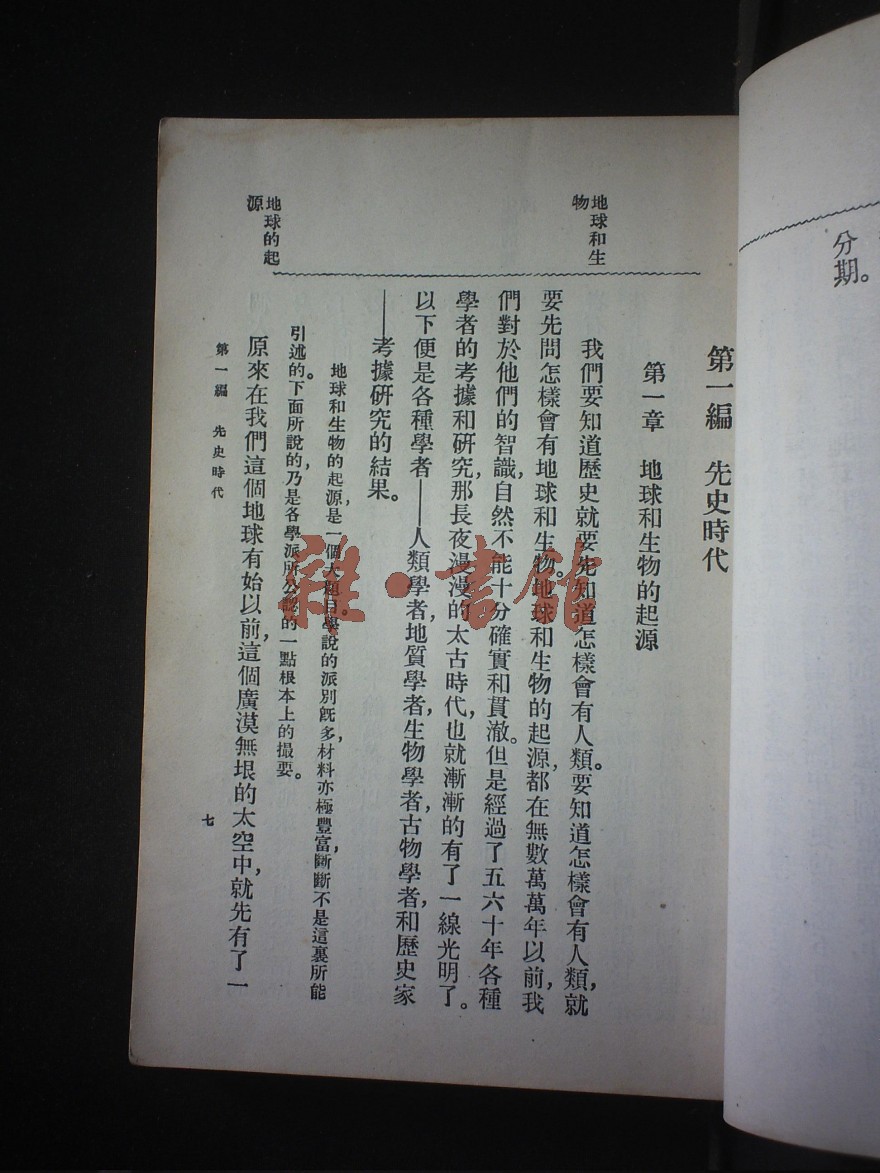 分期。
第一編　先史時代
第一章　地球和生物的起源
地球和生
物
我們要知道歷史就要先知道怎樣會有人類。要知道怎樣會有人類，就
要先問怎樣會有地球和生物。地球和生物的起源，都在無數萬萬年以前，我
們對於他們的智識，自然不能十分確實和貫澈。但是經過了五六十年各種
學者的考據和研究，那長夜漫漫的太古時代，也就漸漸的有了一線光明了。
以下便是各種學者——人類學者，地質學者，生物學者，古物學者，和歷史家
——考據研究的結果。
地球和生物的起源，是一個大題目。學說的派別旣多，材料亦極豐富，斷斷不是這裏所能
引述的。下面所說的，乃是各學派所公認的一點根本上的撮要。
地球的起
源
原來在我們這個地球有始以前，這個廣漠無垠的太空中，就先有了一
第一編　先史時代
七
雜·書館